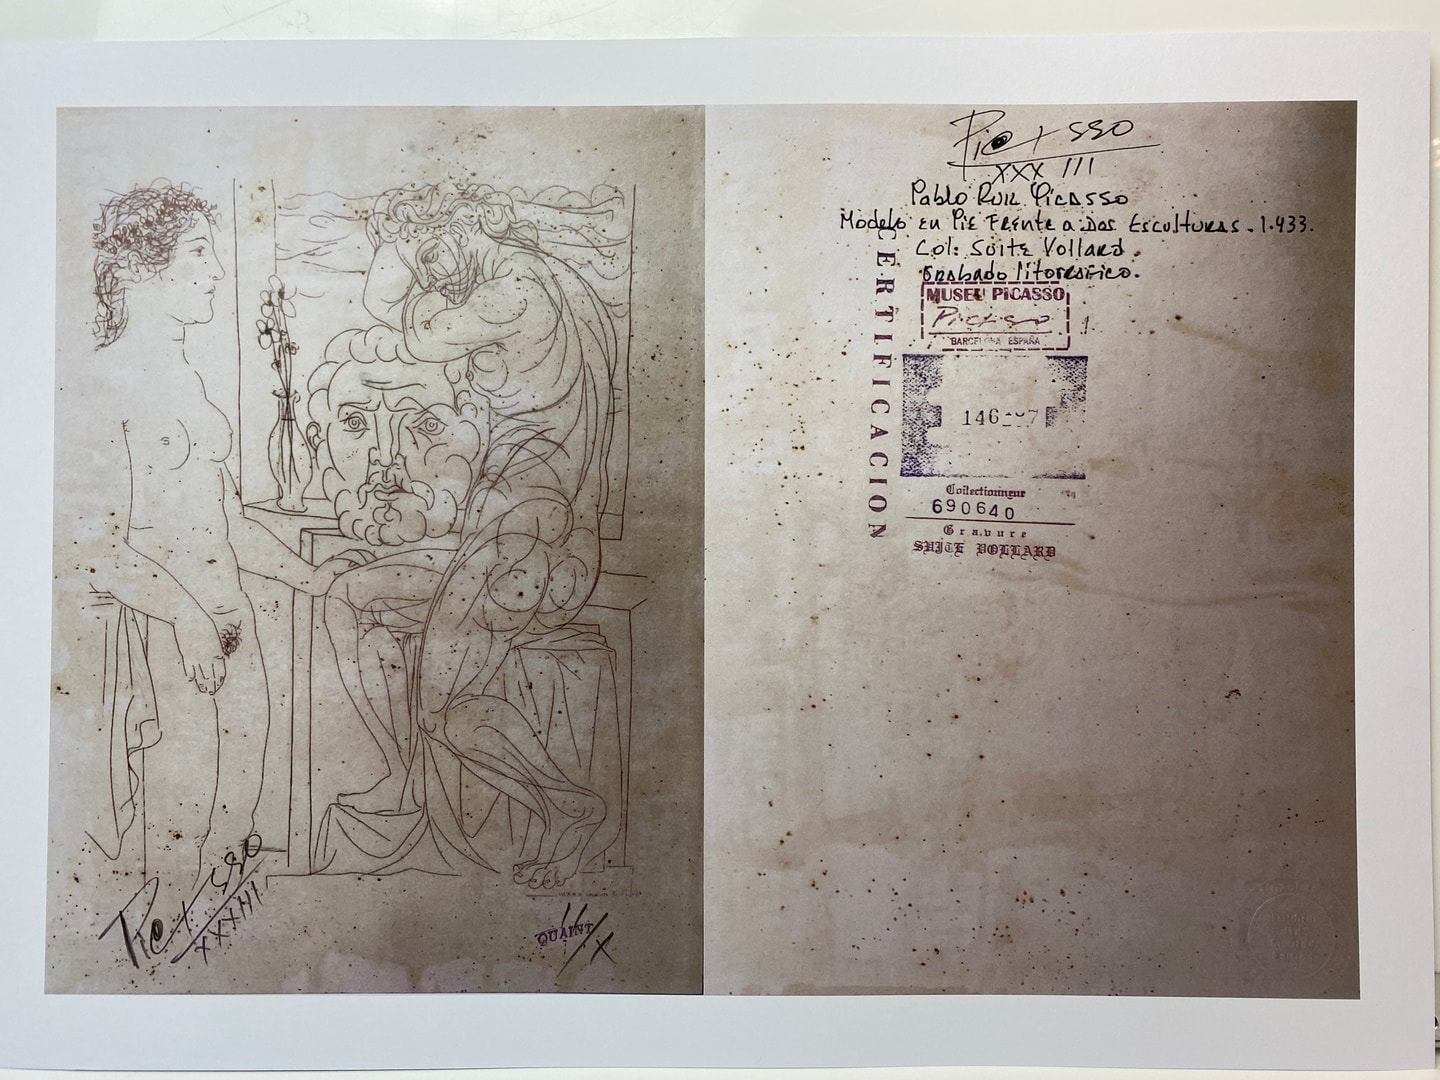 Picasso
XXXIII
QUAINT
II/X
Picasso
XXX III
Pablo Ruiz Picasso
Modelo en Pie Frente a Dos Esculturas - 1.933.
Col: Suite Vollard
Grabado litografico.
CERTIFICACION
MUSEU PiCASSO
Picasso
BARCELONA ESPAÑA
Collectionneur
690640
Gravure
SUITE VOLLARD